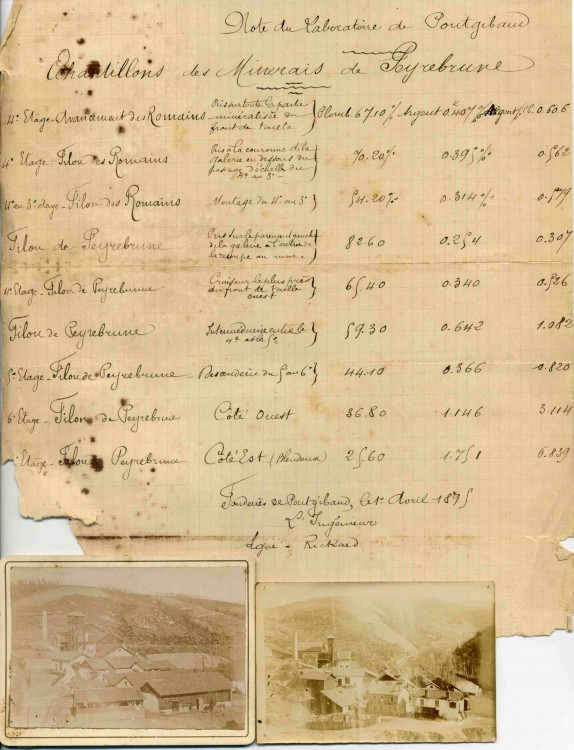 Note du Laboratoire de Pontgibaud
Echantillons des Minerais de Peyrebrune
4e Etage - des Romains Pris sur toute la partie minéralisée du front de taille } Plomb 67.10% Argent 0k407 % Argent/Pl. 0.606
4e Etage - Filon des Romains Pris à la couronne de la galerie en dessous du passage d'échelle du 4e au 3e 70.20% 0.395% 0.562
4e au 3e étage - Filon des Romains Montage du 4e au 3e } 54.20% 0.314% 0.579
Filon de Peyrebrune Pris sur le parement de la galerie à au mur. 82.60 0.254 0.307
4e Etage - Filon de Peyrebrune Croiseur le plus près du front de taille ouest 65.40 0.340 0.526
Filon de Peyrebrune Intermédiaire entre le 4e et le 5e } 59.30 0.642 1.082
5e Etage - Filon de Peyrebrune - Descenderie du 5 au 6e } 44.10 0.366 0.820
6e Etage - Filon de Peyrebrune Côté Ouest 36.80 1.146 3.114
Etage - Filon de Peyrebrune Côté Est (Blendeux) 25.60 1.751 6.839
Fonderies de Pontgibaud, le 1er Avril 1895
L'Ingénieur
Signé -